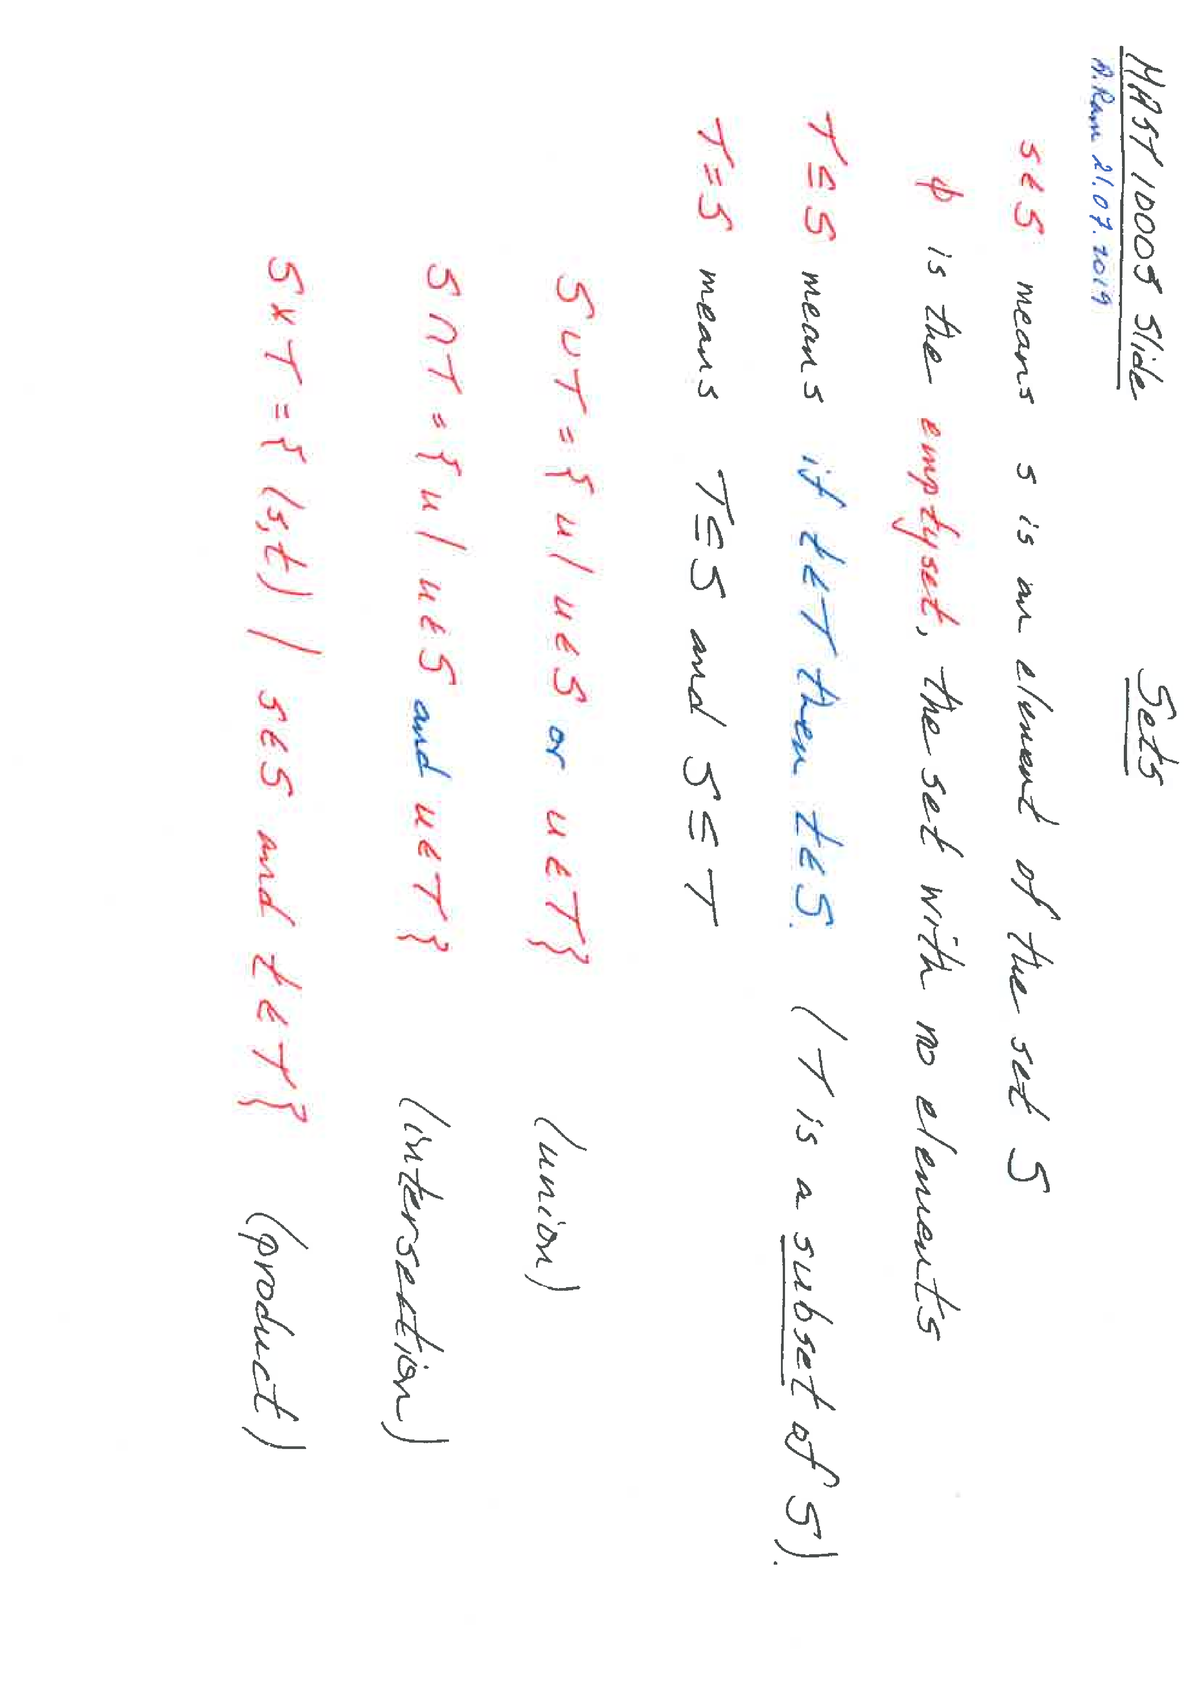 MAST 10005 Slide
A. Ram 21.07.2019
Sets
s∈S means s is an element of the set S
∅ is the emptyset, the set with no elements
T⊆S means if t∈T then t∈S. (T is a subset of S).
T=S means T⊆S and S⊆T
S∪T={u| u∈S or u∈T} (union)
S∩T={u| u∈S and u∈T} (intersection)
S×T={(s,t) | s∈S and t∈T} (product)